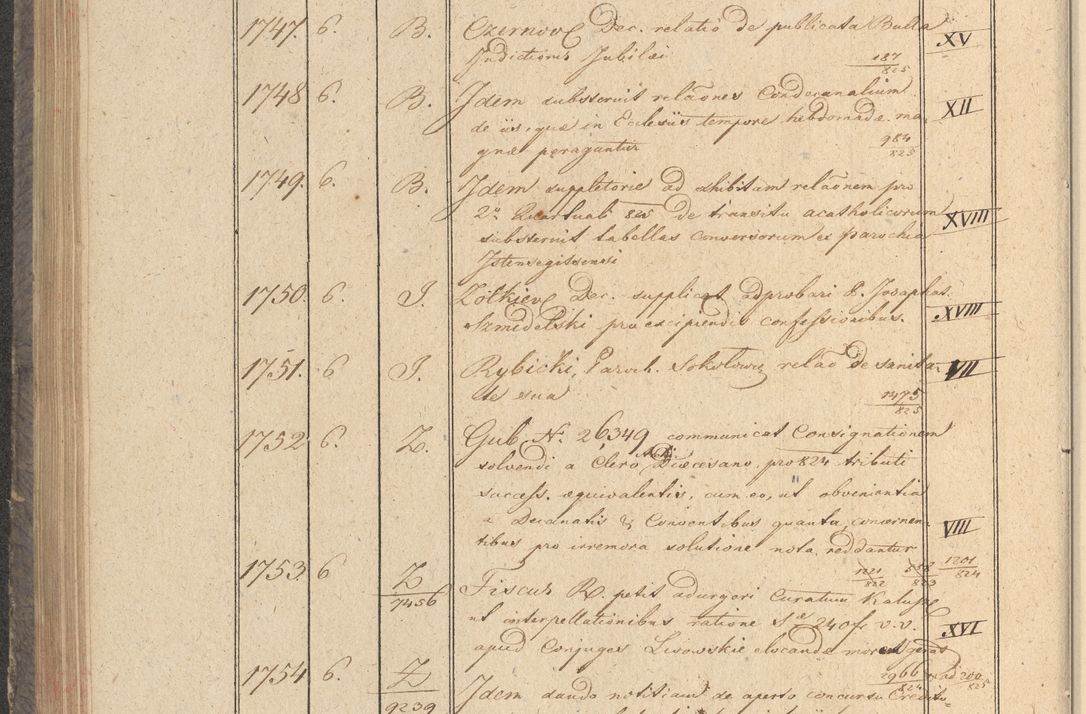 1747. 6. B. Czernov Dec. relatio de publicata Bulla XV
Indictionis Jubilæi 187/825
1748 6. B. Idem substernit relaōnes Condecanalium XII
de iis, quæ in Ecclesiis tempore hebdomadæ ma-
gnæ peraguntur 984/823
1749. 6. B. Idem suppletorie ad exhibitam relaōnem pro
2º Quartuali 825 de transitu acatholicorum XVIII
substernit tabellas conversorum ex parochia
1750. 6. J. Zolkiev Dec. supplicat adprobari P. Josaphat XVIII
Szmidelski pro excipiendis confessionibus.
1751. 6. J. Rybicki, Paroch. relaō de sanita- VII
te sua 1475/825
1752 6. Z. Gub. N. 26349 communicat Consignationem
solvendi a Clero Diœcesano pro 824 tributi
success. æquivalentis, cum eo, ut obvenientia
a Decanatis & Conventibus quanta, concernen- VIII
tibus pro irremora solutione nota reddantur
1821/822 823 1201/824
1753. 6 Z/7456 Fiscus R. petit adurgeri Curatum
ut interpellationibus ratione 240 f. v.v. XVI
apud Conjuges Lwowskie elocanda
1966/824 ad 200/825
1754 6. Z/9239 Idem dando notitiam de aperto concursu Credito-